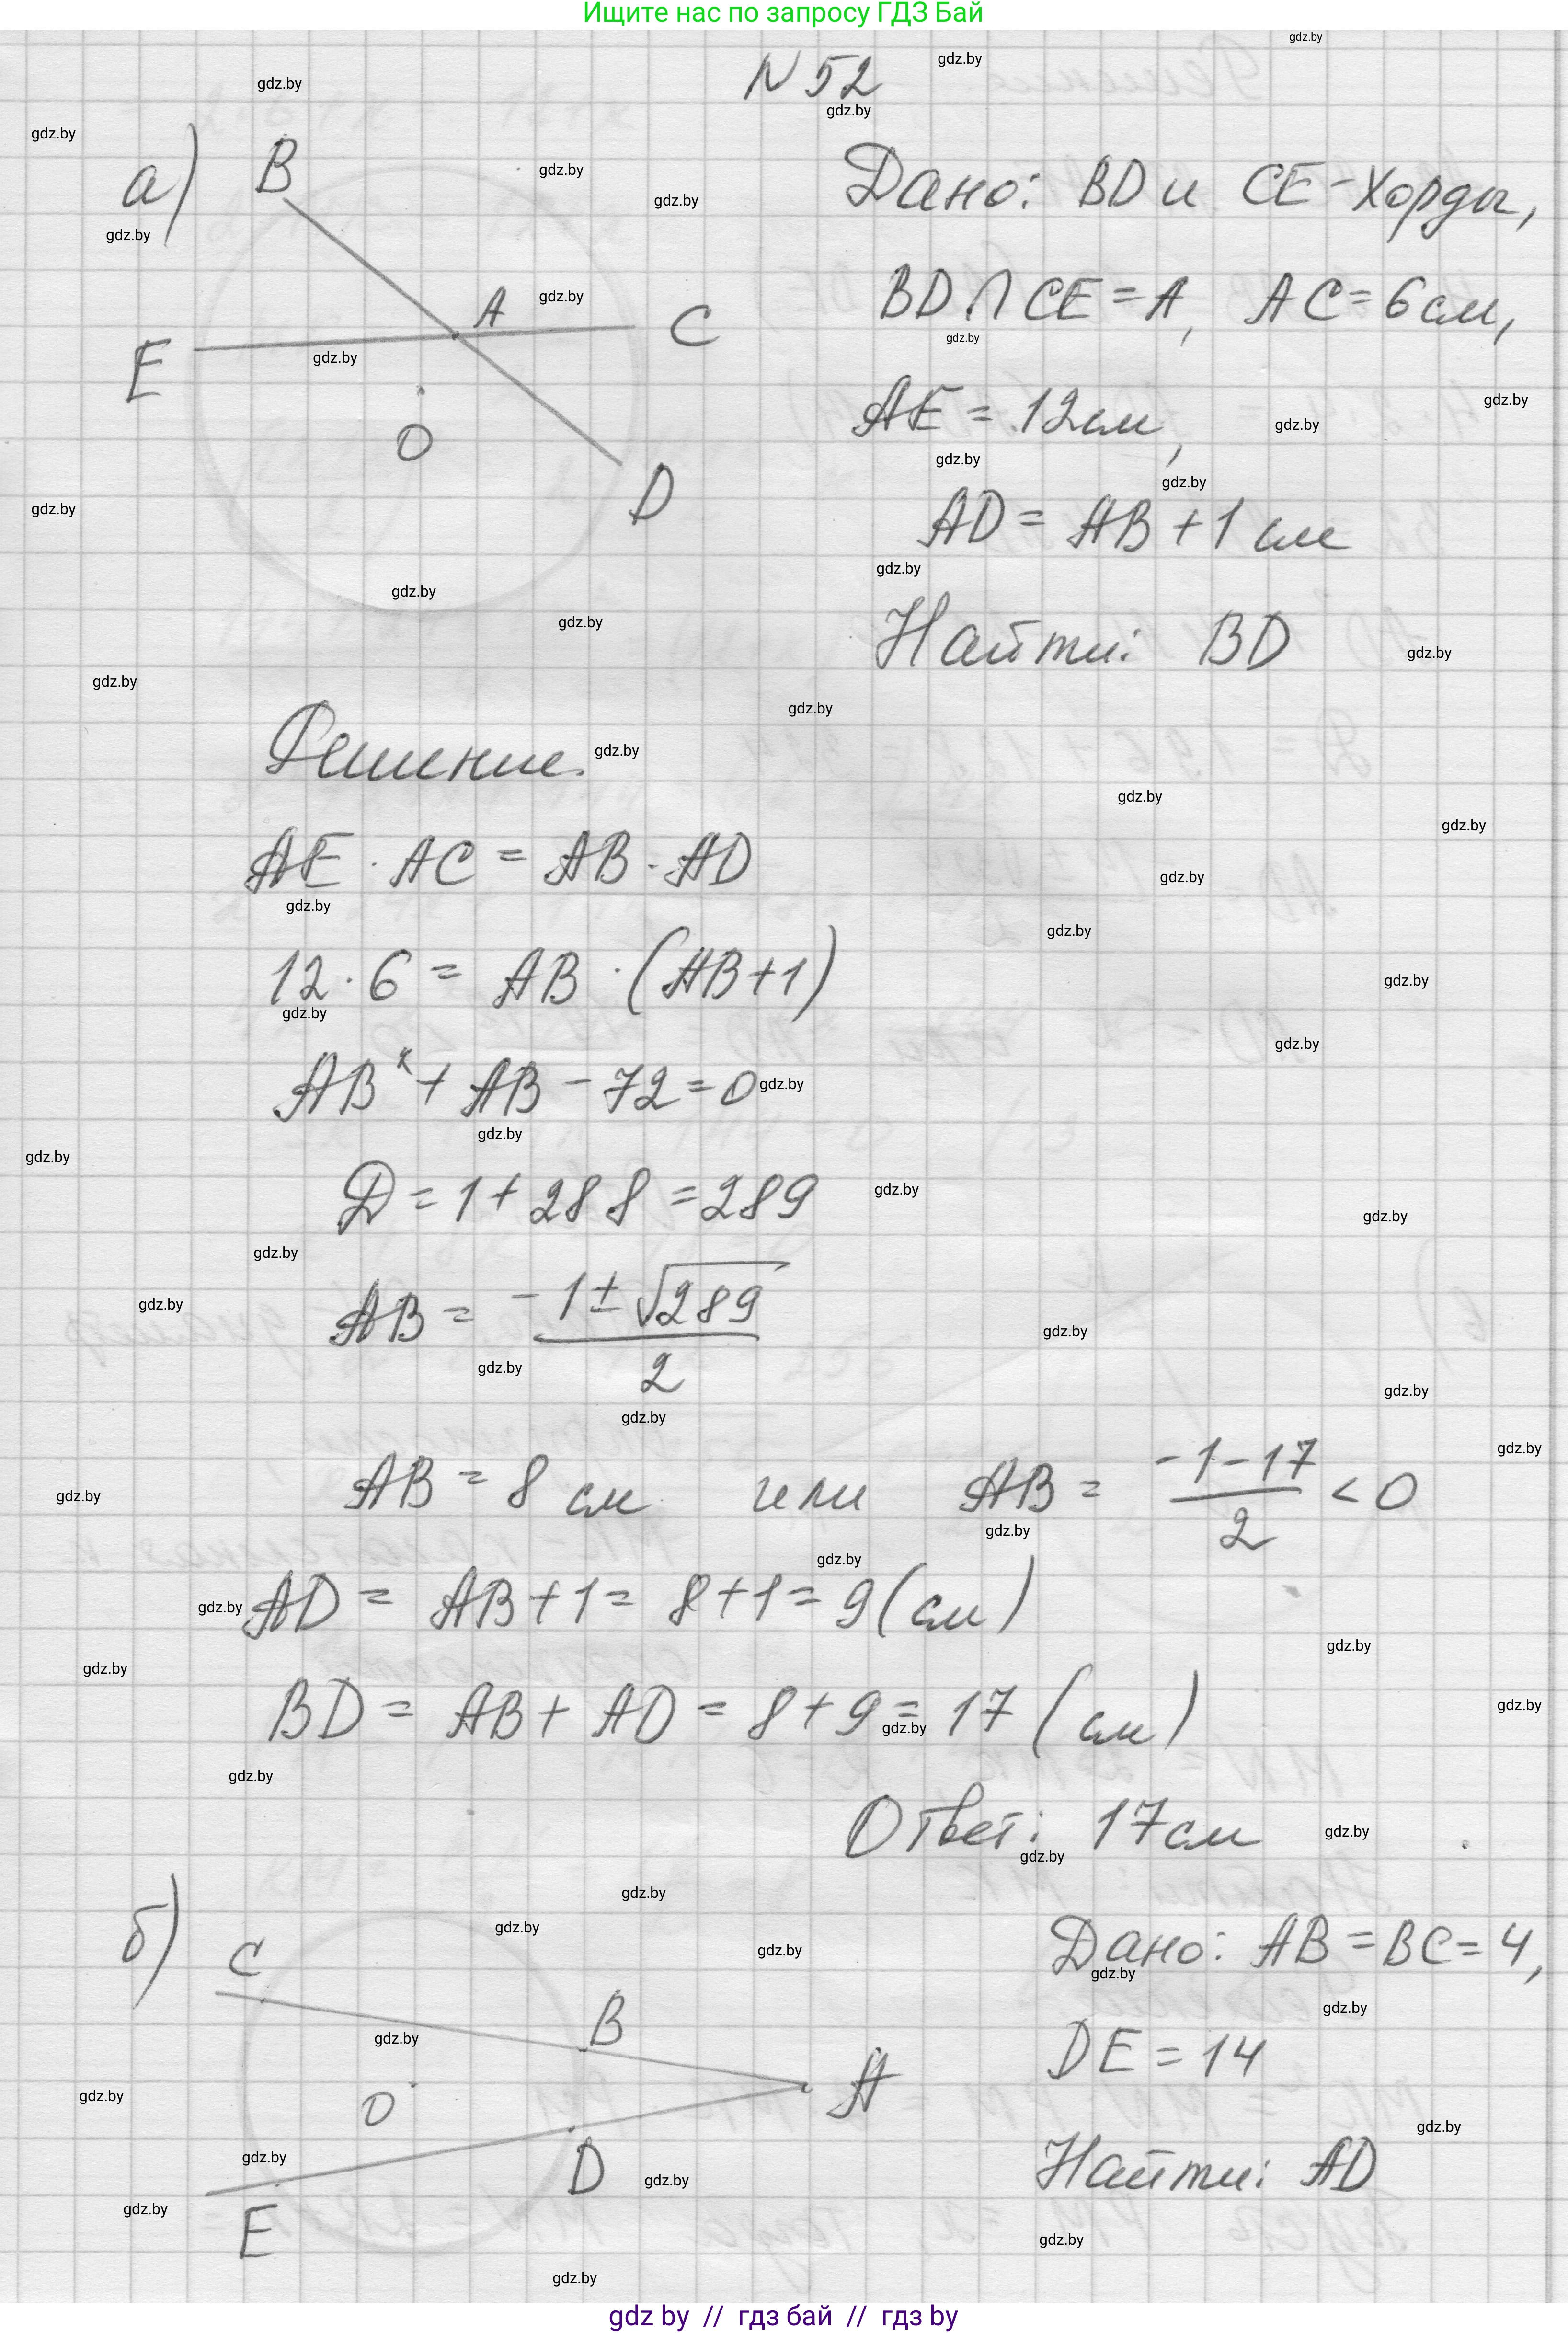 Ищите нас по запросу ГДЗ Бай
N 52
а)
B
A
C
E
O
D
Дано: BD и CE - хорды,
BD ∩ CE = A, AC = 6 см,
AE = 12 см,
AD = AB + 1 см
Найти: BD
Решение.
AE · AC = AB · AD
12 · 6 = AB · (AB + 1)
AB² + AB - 72 = 0
Д = 1 + 288 = 289
AB = (-1 ± √289) / 2
AB = 8 см или AB = (-1 - 17) / 2 < 0
AD = AB + 1 = 8 + 1 = 9 (см)
BD = AB + AD = 8 + 9 = 17 (см)
Ответ: 17 см
б)
C
B
A
O
D
E
Дано: AB = BC = 4,
DE = 14
Найти: AD
gdz by // гдз бай // гдз by